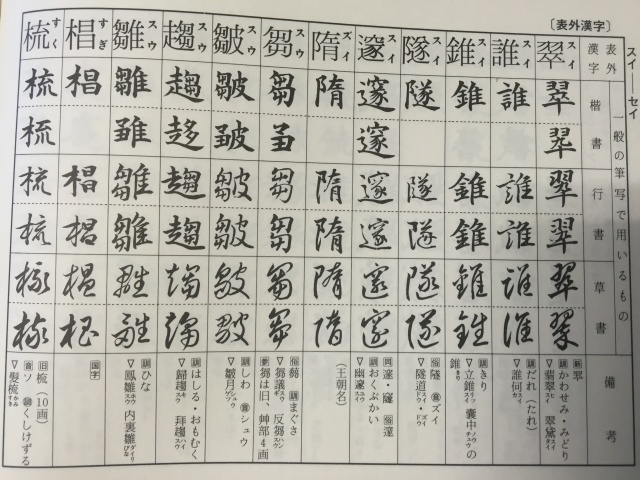 スイ―セイ
〔表外漢字〕
表外漢字
一般の筆写で用いるもの
楷書
行書
草書
備考
翠スイ
翠 翠
翠 翠
翠 翠
訓かわせみ・みどり
▽翡翠スイ 翠黛タイ
誰スイ
誰
誰 誰
誰 誰
訓だれ(たれ)
▽誰何スイカ
錐スイ
錐
錐 錐
錐 錐
訓きり
▽立錐スイ 囊中ノウチュウの錐きり
隧スイ
隧
隧 隧
隧 隧
音ズイ
▽隧道スイドウ・ズイドウ
邃スイ
邃 邃
邃 邃
邃 邃
訓おくぶかい
▽幽邃スイ
隋ズイ
隋
隋 隋
隋 隋
(王朝名)
芻スウ
芻
芻 芻
芻 芻
訓まぐさ
▽芻議スウギ 反芻スウ
芻は旧 艸部4画
皺スウ
皺
皺 皺
皺 皺
訓しわ 音シュウ
▽皺月
趨スウ
趨
趨 趨
趨 趨
訓はしる・おもむく
▽帰趨スウ 拝趨スウ
雛スウ
雛
雛 雛
雛 雛
訓ひな
▽鳳雛ホウスウ 内裏雛ダイリびな
椙すぎ
椙
椙 椙
椙 椙
国字
梳すく
梳 梳
梳 梳
梳 梳
旧梳(10画)
音ソ 訓くしけずる
▽髪梳かみすき